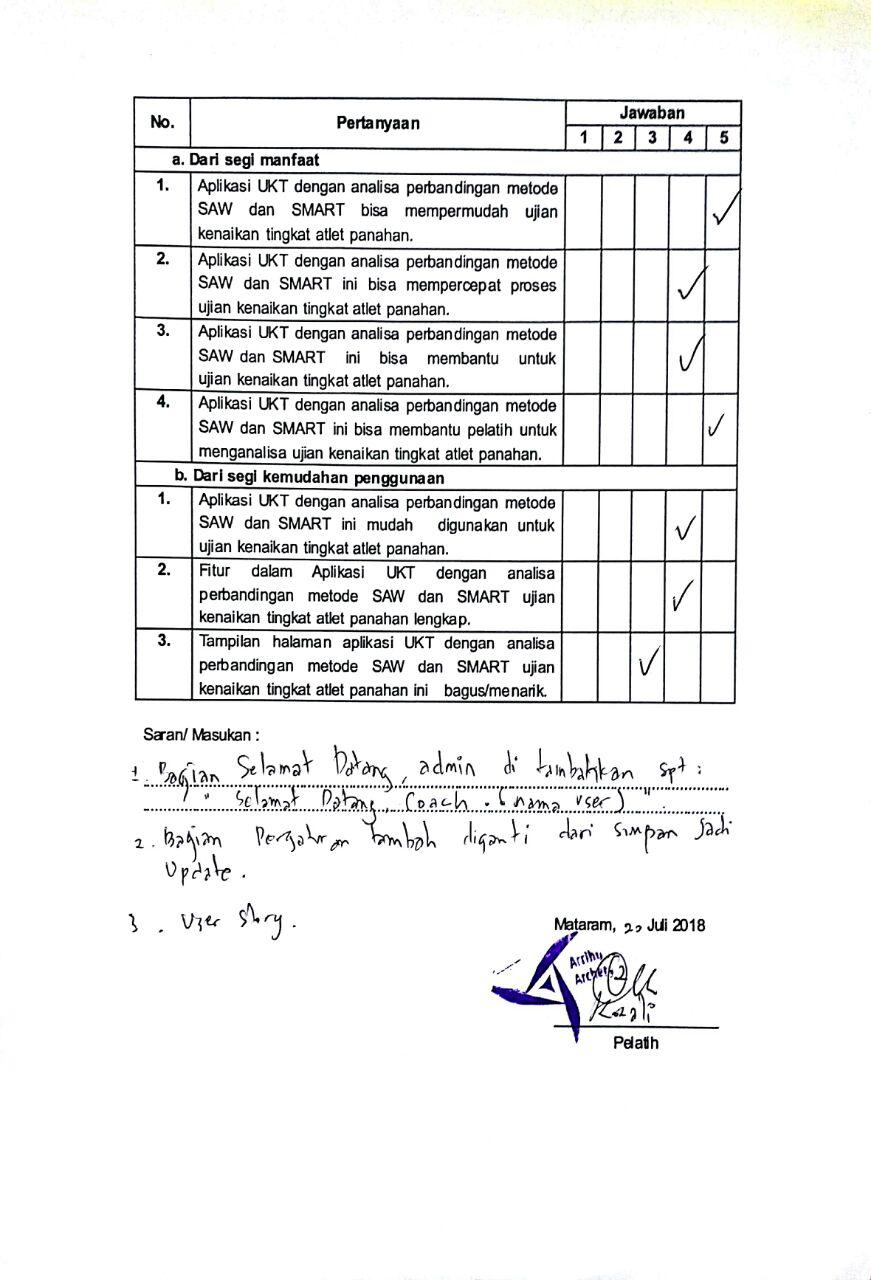 No. Pertanyaan Jawaban
1 2 3 4 5
a. Dari segi manfaat
1. Aplikasi UKT dengan analisa perbandingan metode
SAW dan SMART bisa mempermudah ujian
kenaikan tingkat atlet panahan.
2. Aplikasi UKT dengan analisa perbandingan metode
SAW dan SMART ini bisa mempercepat proses
ujian kenaikan tingkat atlet panahan.
3. Aplikasi UKT dengan analisa perbandingan metode
SAW dan SMART ini bisa membantu untuk
ujian kenaikan tingkat atlet panahan.
4. Aplikasi UKT dengan analisa perbandingan metode
SAW dan SMART ini bisa membantu pelatih untuk
menganalisa ujian kenaikan tingkat atlet panahan.
b. Dari segi kemudahan penggunaan
1. Aplikasi UKT dengan analisa perbandingan metode
SAW dan SMART ini mudah digunakan untuk
ujian kenaikan tingkat atlet panahan.
2. Fitur dalam Aplikasi UKT dengan analisa
perbandingan metode SAW dan SMART ujian
kenaikan tingkat atlet panahan lengkap.
3. Tampilan halaman aplikasi UKT dengan analisa
perbandingan metode SAW dan SMART ujian
kenaikan tingkat atlet panahan ini bagus/menarik.
Saran/ Masukan :
1. Bagian Selamat Datang, admin di tambahkan spt :
" Selamat Datang, Coach . (nama user) "
2. Bagian tambah diganti dari simpan jadi
Update.
3 . User Story.
Mataram, Juli 2018
Archery
Pelatih